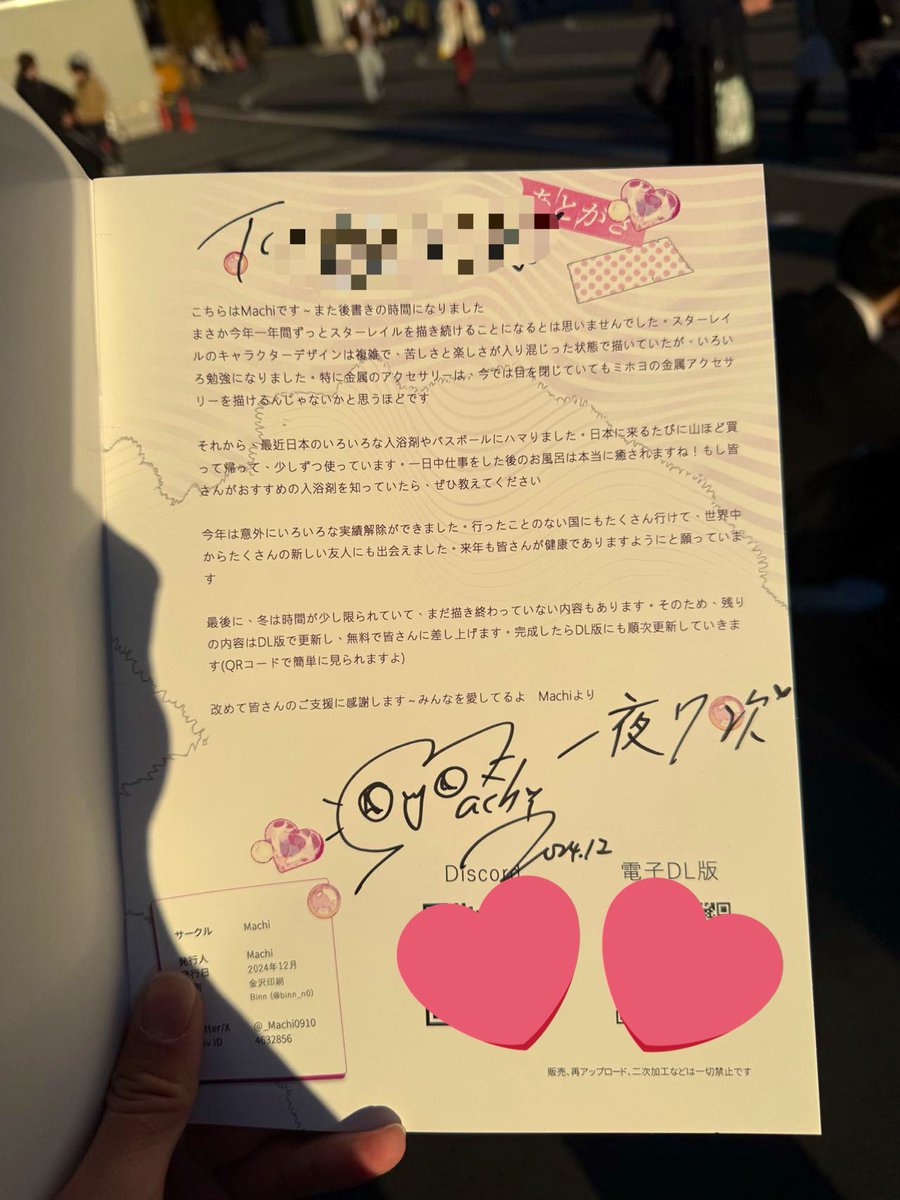 To
あとがき
こちらはMachiです~また後書きの時間になりました
まさか今年一年間ずっとスターレイルを描き続けることになるとは思いませんでした。スターレイ
ルのキャラクターデザインは複雑で、苦しさと楽しさが入り混じった状態で描いていたが、いろい
ろ勉強になりました。特に金属のアクセサリーは、今では目を閉じていてもミホヨの金属アクセサ
リーを描けるんじゃないかと思うほどです
それから、最近日本のいろいろな入浴剤やバスボールにハマりました。日本に来るたびに山ほど買
って帰って、少しずつ使っています。一日中仕事をした後のお風呂は本当に癒されますね！もし皆
さんがおすすめの入浴剤を知っていたら、ぜひ教えてください
今年は意外にいろいろな実績解除ができました。行ったことのない国にもたくさん行けて、世界中
からたくさんの新しい友人にも出会えました。来年も皆さんが健康でありますようにと願っていま
す
最後に、冬は時間が少し限られていて、まだ描き終わっていない内容もあります。そのため、残り
の内容はDL版で更新し、無料で皆さんに差し上げます。完成したらDL版にも順次更新していきま
す(QRコードで簡単に見られますよ)
改めて皆さんのご支援に感謝します~みんなを愛してるよ　Machiより
一夜7次
Machi
2024.12
Discord
電子DL版
サークル Machi
発行人 Machi
発行日 2024年12月
金沢印刷
Binn (@binn_n0)
tter/X @_Machi0910
iv ID 4632856
販売、再アップロード、二次加工などは一切禁止です